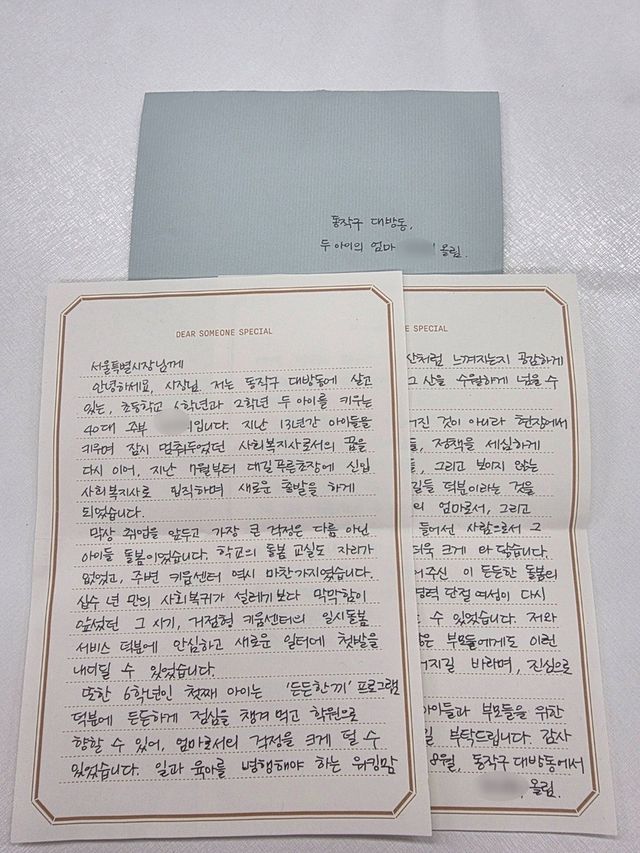 동작구 대방동,
두 아이의 엄마 올림.
DEAR SOMEONE SPECIAL
서울특별시장님께
안녕하세요, 시장님 저는 동작구 대방동에 살고
있는, 초등학교 6학년과 2학년 두 아이를 키우는
40대 주부 입니다. 지난 13년간 아이들을
키우며 잠시 멈춰두었던 사회복지사로서의 꿈을
다시 이어, 지난 7월부터 대길푸른초장에 신입
사회복지사로 입직하며 새로운 출발을 하게
되었습니다.
막상 취업을 앞두고 가장 큰 걱정은 다름 아닌
아이들 돌봄이었습니다. 학교의 돌봄 교실도 자리가
없었고, 주변 키움센터 역시 마찬가지였습니다.
십수 년 만의 사회복귀가 설레기보다 막막함이
앞섰던 그 시기, 거점형 키움센터의 일시돌봄
서비스 덕분에 안심하고 새로운 일터에 첫발을
내디딜 수 있었습니다.
또한 6학년인 첫째 아이는 '든든한끼' 프로그램
덕분에 든든하게 점심을 챙겨 먹고 학원으로
향할 수 있어, 엄마로서의 걱정을 크게 덜 수
있었습니다. 일과 육아를 병행해야 하는 워킹맘
SPECIAL
산처럼 느껴지는지 공감하게
그 산을 수월하게 넘을 수
진 것이 아니라 현장에서
들, 정책을 세심하게
들, 그리고 보이지 않는
길들 덕분이라는 것을
의 엄마로서, 그리고
들어선 사람으로서 그
더욱 크게 와 닿습니다.
주신 이 든든한 돌봄의
경력 단절 여성이 다시
수 있었습니다. 저와
은 부모들에게도 이런
지길 바라며, 진심으로
아이들과 부모들을 위한
부탁드립니다. 감사
8월, 동작구 대방동에서
올림.